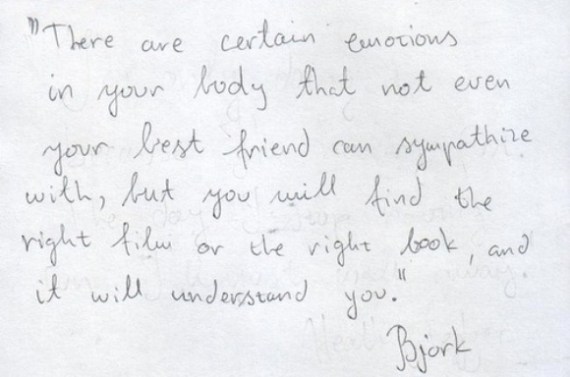 "There are certain emotions
in your body that not even
your best friend can sympathize
with, but you will find the
right film or the right book, and
it will understand you."
Bjork